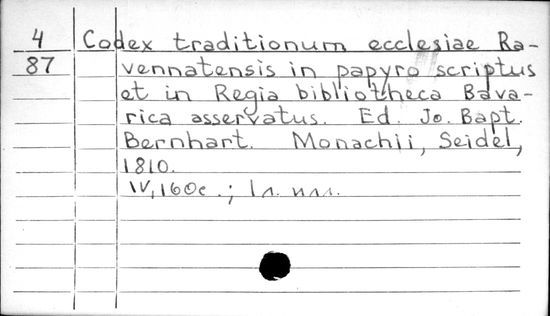 4 Codex traditionum ecclesiae Ra-
87 vennatensis in papyro scriptus
et in Regia bibliotheca Bava-
rica asservatus. Ed. Jo. Bapt.
Bernhart. Monachii, Seidel,
1810.
IV, 160с.; 1л. илл.